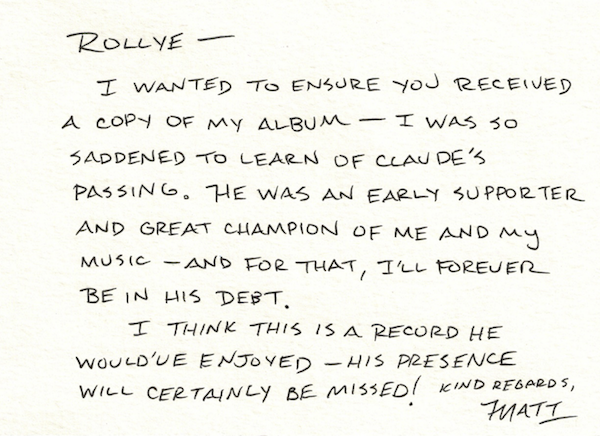 ROLLYE —
I WANTED TO ENSURE YOU RECEIVED
A COPY OF MY ALBUM — I WAS SO
SADDENED TO LEARN OF CLAUDE'S
PASSING. HE WAS AN EARLY SUPPORTER
AND GREAT CHAMPION OF ME AND MY
MUSIC — AND FOR THAT, I'LL FOREVER
BE IN HIS DEBT.
I THINK THIS IS A RECORD HE
WOULD'VE ENJOYED — HIS PRESENCE
WILL CERTAINLY BE MISSED! KIND REGARDS,
MATT